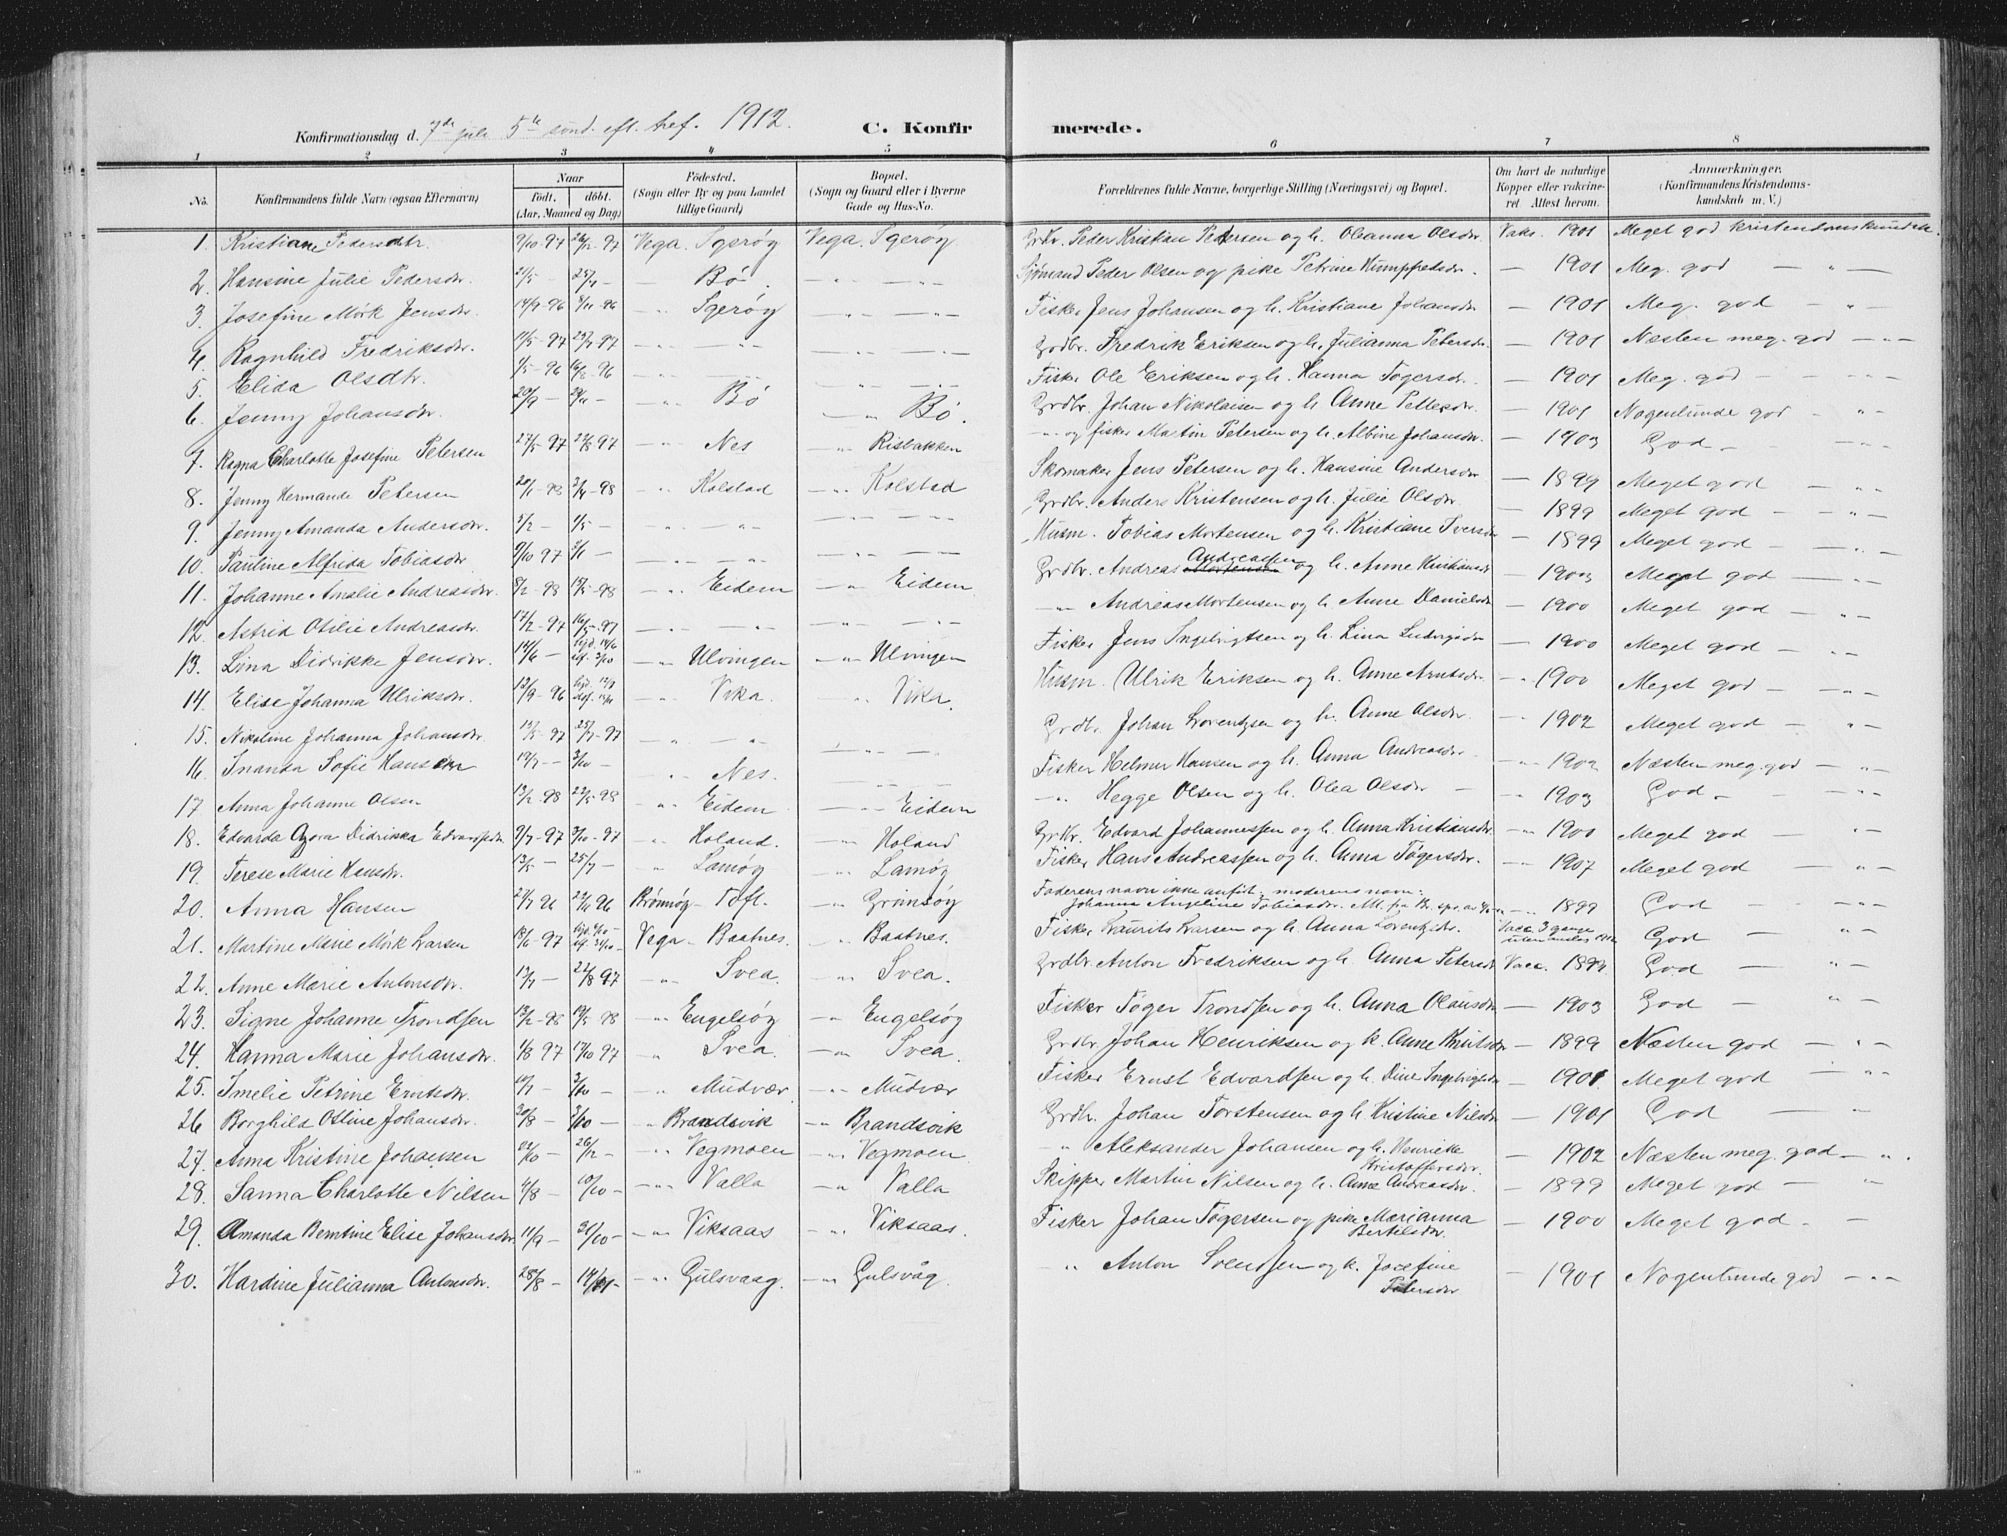 Konfirmationsdag d. 7de juli 5te sønd. eft. tref. 1912. C. Konfirmerede.
1 2 3 4 5 6 7 8
No. Konfirmandens fulde Navn (ogsaa Efternavn) Naar født. døbt. (Aar, Maaned og Dag) Fødested. (Sogn eller By og paa Landet tillige Gaard) Bopæl. (Sogn og Gaard eller i Byerne Gade og Hus-No. Forældrenes fulde Navne, borgerlige Stilling (Næringsvei) og Bopæl. Om havt de naturlige Kopper eller vakcineret. Attest herom. Anmærkninger. (Konfirmandens Kristendomskundskab m. V.)
1. Kristiane Pedersdtr. 9/10-97 26/12-97 Vega. Sgerøy Vega. Sgerøy Grdbr. Peder Kristian Pedersen og h. Oleanna Olsdtr. Vaks. 1901 Meget god kristendomskundsk.
2. Hansine Julie Pedersdtr. 21/5 — 25/7 — — Bø. — " — " — Sjømand Peder Olsen og pike Petrine Humpfredsdr. — 1901 Meg. god — " —
3. Josefine Mørk Jensdr. 14/9-96 8/11-96 — " Sgerøy — " — " — Fisker Jens Johansen og h. Kristiane Johansdr — 1901 Meg. god — "
4. Ragnhild Fredriksdr. 11/5-97 25/7-97 — " — " — — " — " — Grdbr. Fredrik Eriksen og h. Julianna Petersdr. — 1901 Næsten meg. god — " —
5. Elida Olsdtr. 1/5-96 16/8-96 — " — — " — " — Fisker Ole Eriksen og h. Hanna Tøgersdr. — 1901 Meg. god — " —
6. Jenny Johansdr. 20/9 — 29/11 — — " Bø — " Bø. Grdbr. Johan Nikolaisen og h. Anne Pettersdr. — 1901 Nogenlunde god — " —
7. Ragna Charlotte Josefine Petersen 27/5-97 29/8 97 — " Nes — " Risbakken — " og fisker Martin Petersen og h. Albine Johansdr. — 1903 God — — " —
8. Jenny Hermande Petersen 20/1-98 3/4-98 — " Kolstad — " Kolstad Skomaker Jens Petersen og h. Hansine Andersdr — 1899 Meget god — — "
9. Jenny Amanda Andersdr. 3/2 — 1/5 — — " — " — — " — " — Grdbr. Anders Kristensen og h. Julie Olsdr. — 1899 Meget god — — " —
10. Pauline Alfrida Tobiasdr 9/10 97 3/1 — — " — " — — " — " — Husm. Tobias Mortensen og h. Kristiane Iversdr — 1899 Meget god — — " —
11. Johanne Amalie Andreasdr. 8/2-98 15/5-98 — " Eidem — " Eidem Grdbr. Andreas Andreassen og h. Anne Kristiansdr — 1903 Meget god — — " —
12. Astrid Otilie Andreasdr. 17/2-97 16/5-97 — " — " — — " — " — — " — Andreas Mortensen og h. Anne Danielsdr — 1900 Meget god — "
13. Lina Didrikke Jensdr. 14/6 — hjd. 14/6 stf. 3/10 — " Ulvingen — " Ulvingen Fisker Jens Ingebrigtsen og h. Lina Ludvigsdr — 1900 Meget god — — "
14. Elise Johanna Ulriksdr. 12/9 96 — " Vika. — " Vika. Husm. Ulrik Eriksen og h. Anne Arntsdr. — " 1900 Meget god — — " —
15. Nikoline Johanna Johansdr 15/5-97 25/7-97 — " — " — — " — " — Grdbr. Johan Lorentzsen og h. Anne Olsdr. — " 1902 Meget god — "
16. Inanda Sofie Hansen 19/7 — 3/10 — — " Nes. — " — Fisker Helmer Hansen og h. Anna Andreasdr — — " 1902 Næsten meg. god — — " —
17 Anna Johanne Olsen 13/2-98 22/5-98 — " Eidem — " Eidem — " — Hegge Olsen og h. Olea Olsdr — — " 1903 God — — — " —
18. Edvarda Azora Didrikka Edvardsdr 9/7-97 3/10-97 — " Holand. — " Holand Grdbr. Edvard Johannessen og h. Anna Kristiansdr. — " 1900 Meget god — — "
19. Terese Marie Hansdr. 13/5 — 25/7 — — " Lamøy — " Lamøy Fisker Hans Andreassen og h. Anna Tøgersdr. — " 1907 Meget god — — " —
20. Anna Hansen 27/7 96 22/11 96 Brønnøy — Toft. — " Grimsøy Faderens navn ikke anført. moderens navn: Johanna Angeline Tobiasdr. — " 1899 God — — " —
21. Martine Marie Mørk Larsen 18/6-97 Vega — Baatnes. — " Baatnes. Fisker Laurits Larsen og h. Anna Lorentzdr. Vacc. 3 gange uten anslag God — — "
22. Anne Marie Antonsdr. 13/7 — 22/8 97 — " Svea — " Svea. Grdbr. Anton Fredriksen og h. Anna Petersdr Vacc. 1899. God — — " —
23. Signe Johanne Trondsen 13/2-98 19/5-98 — " Engelsøy — " Engelsøy Fisker Tøger Trondsen og h. Anna Olausdr — 1903 God — — "
24. Hanna Marie Johansdr. 1/8 97 17/10 97 — " Svea. — " Svea. Grdbr. Johan Henriksen og h. Anne Knutsdr — 1899 Næsten god — — " —
25. Imelie Petrine Erntsdr. 11/7 — 3/10 — — " Mudvær — " Mudvær Fisker Ernst Edvardsen og h. Dine Ingebrigtsdr — 1901 Meget god — " —
26 Borghild Otline Johansdr. 30/8 — 3/10 — — " Brandsvik — " Brandsvik Grdbr. Johan Torstensen og h. Kristine Nilsdr — 1901 God — — "
27. Anna Kristine Johansen 22/10 — 26/12 — — " Vegmoen — " Vegmoen — " Aleksander Johansen og h. Henrikke Kristoffersdr. — 1902 Næsten meg. god — " .
28. Sanna Charlotte Nilsen 4/8 — 10/10 — — " Valla — " Valla Skipper Martin Nilsen og h. Anne Andreasdr. — 1899 Meget god — "
29. Amanda Berntine Elise Johansdr. 11/9 — 31/10 — — " Viksaas — " Viksaas. Fisker Johan Tøgersen og pike Marianna Bertilsdr. — 1900 Meget god — —
30. Hardine Julianna Antonsdr. 28/8 — 14/11 — — " Gulsvaag. — " Gulsvåg. — " Anton Svendsen og h. Josefine Petersdr — 1901 Nogenlunde god — " —